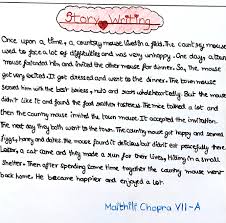 Story Writing
Once upon a time, a country mouse lived in a field. The country mouse
used to face a lot of difficulties and was very unhappy. One day, a town
mouse and invited the other mouse for dinner. So, the mouse
got very excited. It got dressed and went to the dinner. The town mouse
served him with the best and But the mouse
didn't like it and found the food tasteless. The mice talked a lot and
then the country mouse invited the town mouse. It accepted the invitation.
The next day they both went to the The country mouse got happy and served
figs, honey and dates. The mouse found it delicious but didn't eat peacefully there
Later, a cat came and they made a run for their lives, hiding in a small
shelter. Then after spending some time together the country mouse went
back home. He became happier and enjoyed a lot.
Maithili Chopra VII-A